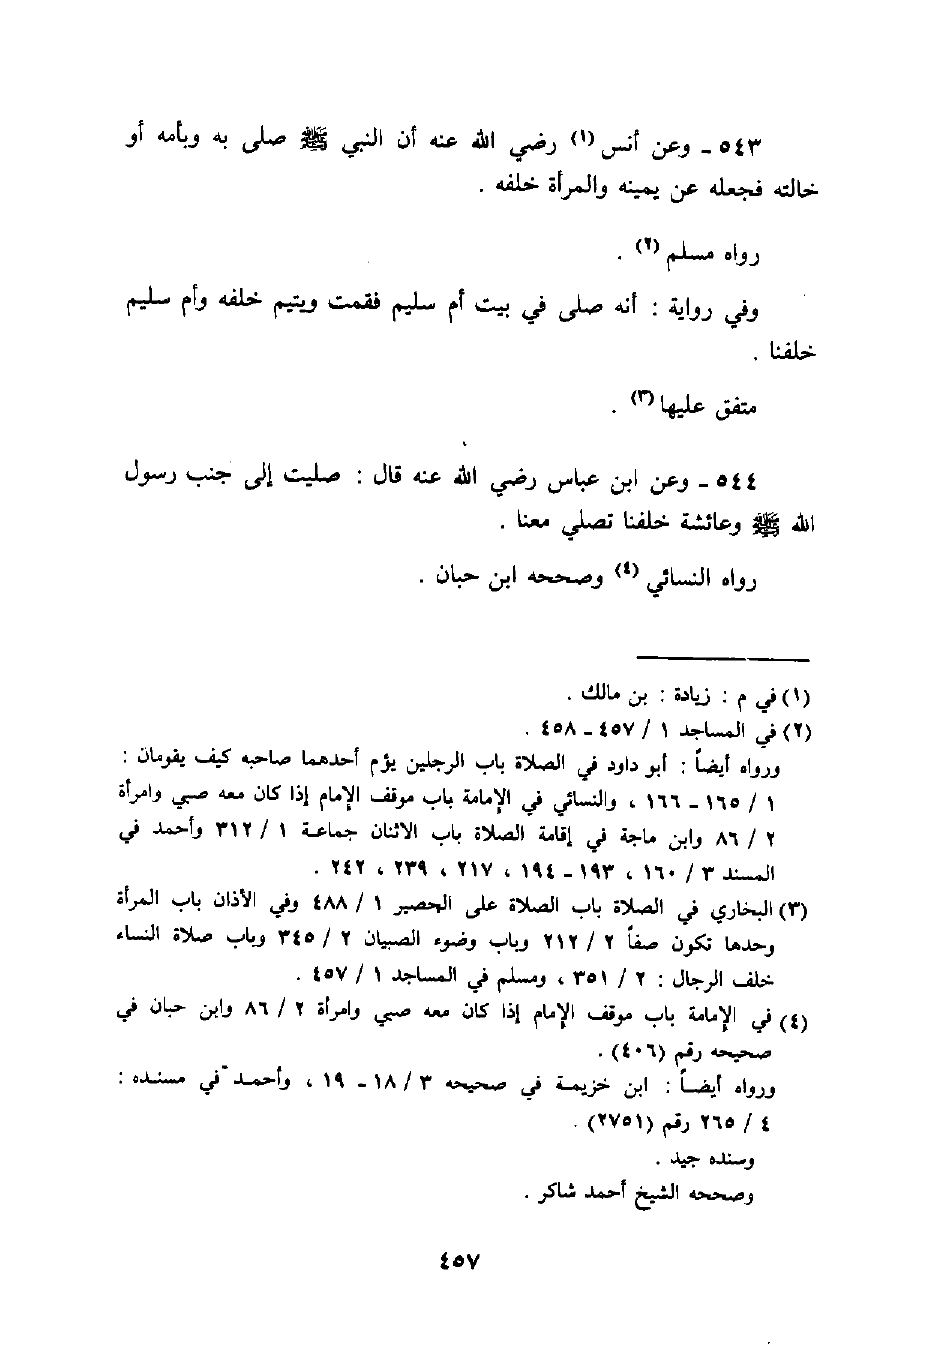 ٥٤٣ - وعن أنس (١) رضي الله عنه أن النبي ﷺ صلى به وبأمه أو
خالته فجعله عن يمينه والمرأة خلفه .
رواه مسلم (٢) .
وفي رواية : أنه صلى في بيت أم سليم فقمت ويتيم خلفه وأم سليم
خلفنا .
متفق عليها (٣) .
٥٤٤ - وعن ابن عباس رضي الله عنه قال : صليت إلى جنب رسول
الله ﷺ وعائشة خلفنا تصلي معنا .
رواه النسائي (٤) وصححه ابن حبان .
(١) في م : زيادة : بن مالك .
(٢) في المساجد ١ / ٤٥٧ - ٤٥٨ .
ورواه أيضاً : أبو داود في الصلاة باب الرجلين يؤم أحدهما صاحبه كيف يقومان :
١ / ١٦٥ - ١٦٦ ، والنسائي في الإمامة باب موقف الإمام إذا كان معه صبي وامرأة
٢ / ٨٦ وابن ماجة في إقامة الصلاة باب الاثنان جماعة ١ / ٣١٢ وأحمد في
المسند ٣ / ١٦٠ ، ١٩٣ - ١٩٤ ، ٢١٧ ، ٢٣٩ ، ٢٤٢ .
(٣) البخاري في الصلاة باب الصلاة على الحصير ١ / ٤٨٨ وفي الأذان باب المرأة
وحدها تكون صفاً ٢ / ٢١٢ وباب وضوء الصبيان ٢ / ٣٤٥ وباب صلاة النساء
خلف الرجال : ٢ / ٣٥١ ، ومسلم في المساجد ١ / ٤٥٧ .
(٤) في الإمامة باب موقف الإمام إذا كان معه صبي وامرأة ٢ / ٨٦ وابن حبان في
صحيحه رقم (٤٠٦) .
ورواه أيضاً : ابن خزيمة في صحيحه ٣ / ١٨ - ١٩ ، وأحمد في مسنده :
٤ / ٢٦٥ رقم (٢٧٥١) .
وسنده جيد .
وصححه الشيخ أحمد شاكر .
٤٥٧